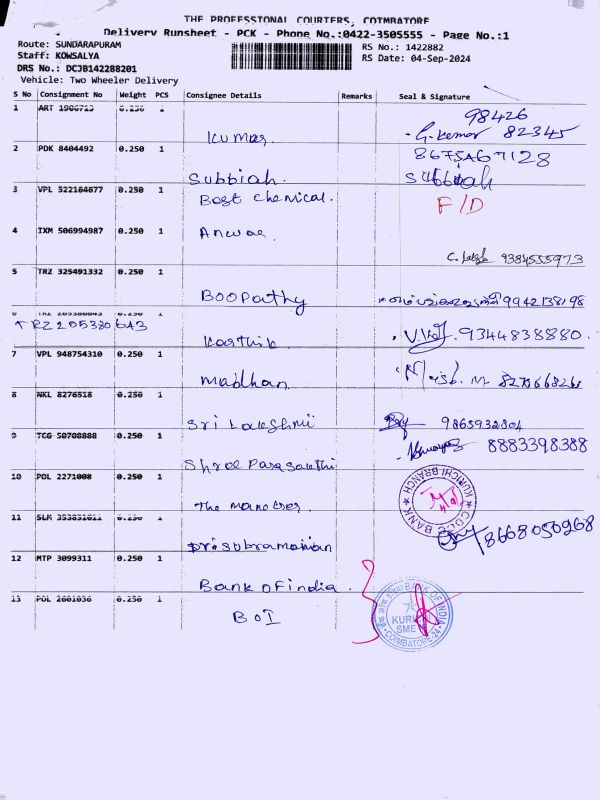 THE PROFESSIONAL COURIERS, COIMBATORE
Delivery Runsheet - PCK - Phone No.:0422-3505555 - Page No.:1
Route: SUNDARAPURAM
RS No.: 1422882
Staff: KOWSALYA
RS Date: 04-Sep-2024
DRS No.: DCJB142288201
Vehicle: Two Wheeler Delivery
S No Consignment No Weight PCS Consignee Details Remarks Seal & Signature
1 ART 0.250 1
98426
Kumar. G. Kumar 82345
2 PDK 8404492 0.250 1
Subbiah. Subbiah
3 VPL 522164677 0.250 1
Best Chemical. F/D
4 IXM 506994987 0.250 1
Anwar
9384555973
5 TRZ 325491332 0.250 1
Boopathy 9942138198
6 TRZ 205380643 0.250 1
TRZ 205380643
Karthik 9344838880
7 VPL 948754310 0.250 1
Madhan
8 NKL 8276518 0.250 1
Sri Lakshmi 9865932804
9 TCG 50708888 0.250 1
Shree Parasakthi 8883398388
10 POL 2271008 0.250 1
The Manager
KURICHI BRANCH
11 SLM 0.250 1
8668050268
12 MTP 3099311 0.250 1
Bank of India
BANK OF INDIA
SME
COIMBATORE-24
13 POL 2601036 0.250 1
BOI